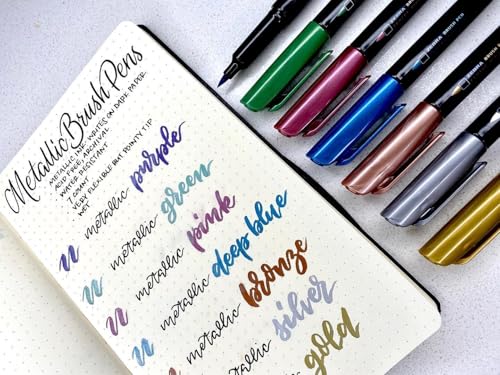 Metallic Brush Pens
METALLIC INK, WRITES ON DARK PAPER
ACID FREE, ARCHIVAL
WATER RESISTANT
7 COUNT
VERY FLEXIBLE BUT POINTY TIP
WET
metallic purple
metallic green
metallic pink
metallic deep blue
metallic bronze
metallic silver
gold
ZEBRA BRUSH PEN
ZEBRA BRUSH PEN
ZEBRA BRUSH PEN